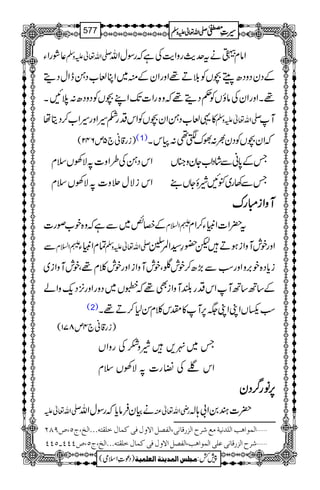 سیرتِ مصطفیٰ صلی اللہ تعالیٰ علیہ وسلم
577
امام بیہقی نے یہ حدیث روایت کی ہے کہ رسول اللہ صلی اللہ تعالیٰ علیہ وسلم عاشوراء
کے دن دودھ پیتے بچوں کو بلاتے تھے اور ان کے منہ میں اپنا لعاب دہن ڈال دیتے
تھے۔ اور ان کی ماؤں کو حکم دیتے تھے کہ وہ رات تک اپنے بچوں کو دودھ نہ پلائیں۔
آپ صلی اللہ تعالیٰ علیہ وسلم کا یہی لعاب دہن ان بچوں کو اس قدر شکم سیر اور سیراب کر دیتا تھا
کہ ان بچوں کو دن بھر نہ بھوک لگتی تھی نہ پیاس۔ (1) (زرقانی ج۵ ص۲۴۶)
جس کے پانی سے شاداب جان و جناں اس دہن کی طراوت پہ لاکھوں سلام
جس سے کھاری کنوئیں شیرۂ جاں بنے اس زلالِ حلاوت پہ لاکھوں سلام
آواز مبارک
یہ حضرات انبیاء کرام علیہم السلام کے خصائص میں سے ہے کہ وہ خوب صورت
اور خوش آواز ہوتے ہیں لیکن حضور سید المرسلین صلی اللہ تعالیٰ علیہ وسلم تمام انبیاء علیہم السلام سے
زیادہ خوبرو اور سب سے بڑھ کر خوش گلو، خوش آواز اور خوش کلام تھے، خوش آوازی
کے ساتھ ساتھ آپ اس قدر بلند آواز بھی تھے کہ خطبوں میں دور اور نزدیک والے
سب یکساں اپنی اپنی جگہ پر آپ کا مقدس کلام سن لیا کرتے تھے۔ (2)
(زرقانی ج۴ ص۱۷۸)
جس میں نہریں ہیں شیر و شکر کی رواں
اس گلے کی نضارت پہ لاکھوں سلام
پرنور گردن
حضرت ہند بن ابی ہالہ رضی اللہ تعالیٰ عنہ نے بیان فرمایا کہ رسول اللہ صلی اللہ تعالیٰ علیہ
المواهب اللدنية مع شرح الزرقانی، الفصل الاول فی کمال خلقته...الخ، ج٥، ص٢٨٩
شرح الزرقانی علی المواهب، الفصل الاول فی کمال خلقته...الخ، ج٥، ص٤٤٤، ٤٤٥
پیش کش: مجلس المدینة العلمیة (دعوتِ اسلامی)